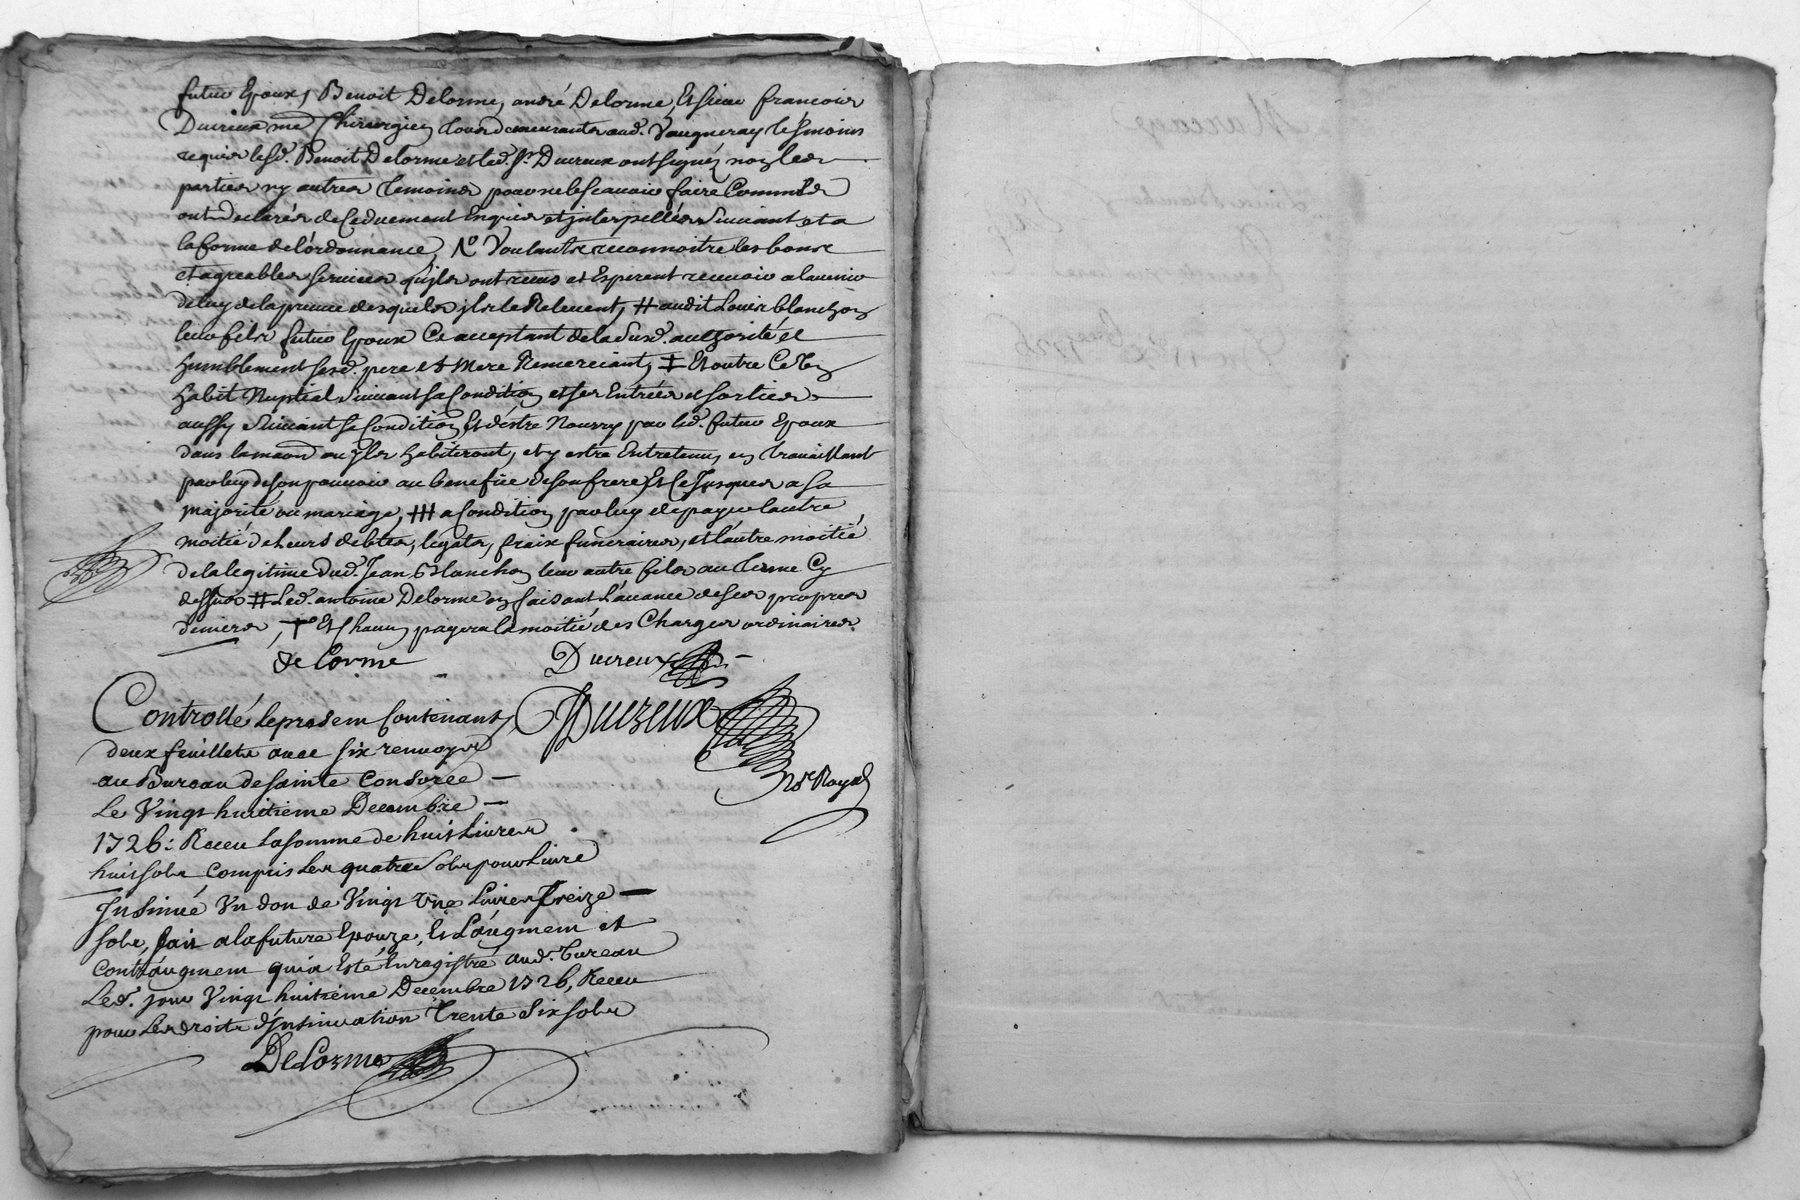 futur Epoux, Benoit Delorme, andré Delorme, Et sieur francois
Ducreux me Chirurgien tous demeurants aud. Vaugneray tesmoins
requis led. Benoit Delorme et led. sr. Ducreux ont signéz non les
parties ny autres temoins pour ne le scauoir faire Comme Ils
ont declarés de ce duement Enquis et interpellés Suiuant et a
la forme de l'ordonnance, No Voulants reconnoitre les bons
et agreables seruices qu'jls ont receus et Esperent receuoir a l'auenir
de luy de la preuue desquels jls le Releuent, # audit Louis blanchon
leur fils futur Epoux Ce acceptant de la Susd. authorité et
humblement sesd. pere et Mere Remerciant, ‡ Et outre Ce Un
habit Nuptial Suiuant sa Condition et ses Entrées et sorties
aussy Suiuant sa Condition Et d'éstre Nourry par led. futur Epoux
dans la maison ou jls habiteront, et y estre Entretenu, en trauaillant
par luy de son pouuoir au benefice de son frere, Et Ce Jusques a sa
majorité ou mariage, ### a Condition par luy de payer l'autre
moitié de Leurs debtes, legats, fraix funeraires, et l'autre moitié
de la legitime dud. Jean Blanchon leur autre fils au terme Cy
dessus # Led. antoine Delorme en faisant l'auance de ses propres
deniers, Et Chacun payera la moitié des Charges ordinaires
de lorme Ducreux
Controllé le present Contenant Ducreux
deux feuillets auec six renuoys
au Bureau de sainte Consorce Nre Royal
Le Vingt huitieme Decembre
1726: Receu la somme de huit Liures
huit sols compris les quatre sols pour Liure
Insinué Un don de Vingt Une Liures treize
sols, fait a la future Epouze, Et L'augment et
contraugment qui a Esté Enragistré aud. bureau
Led. jour Vingt huitiéme Decembre 1726, Receu
pour Les droits d'Insinuation Trente Six sols
DeLorme